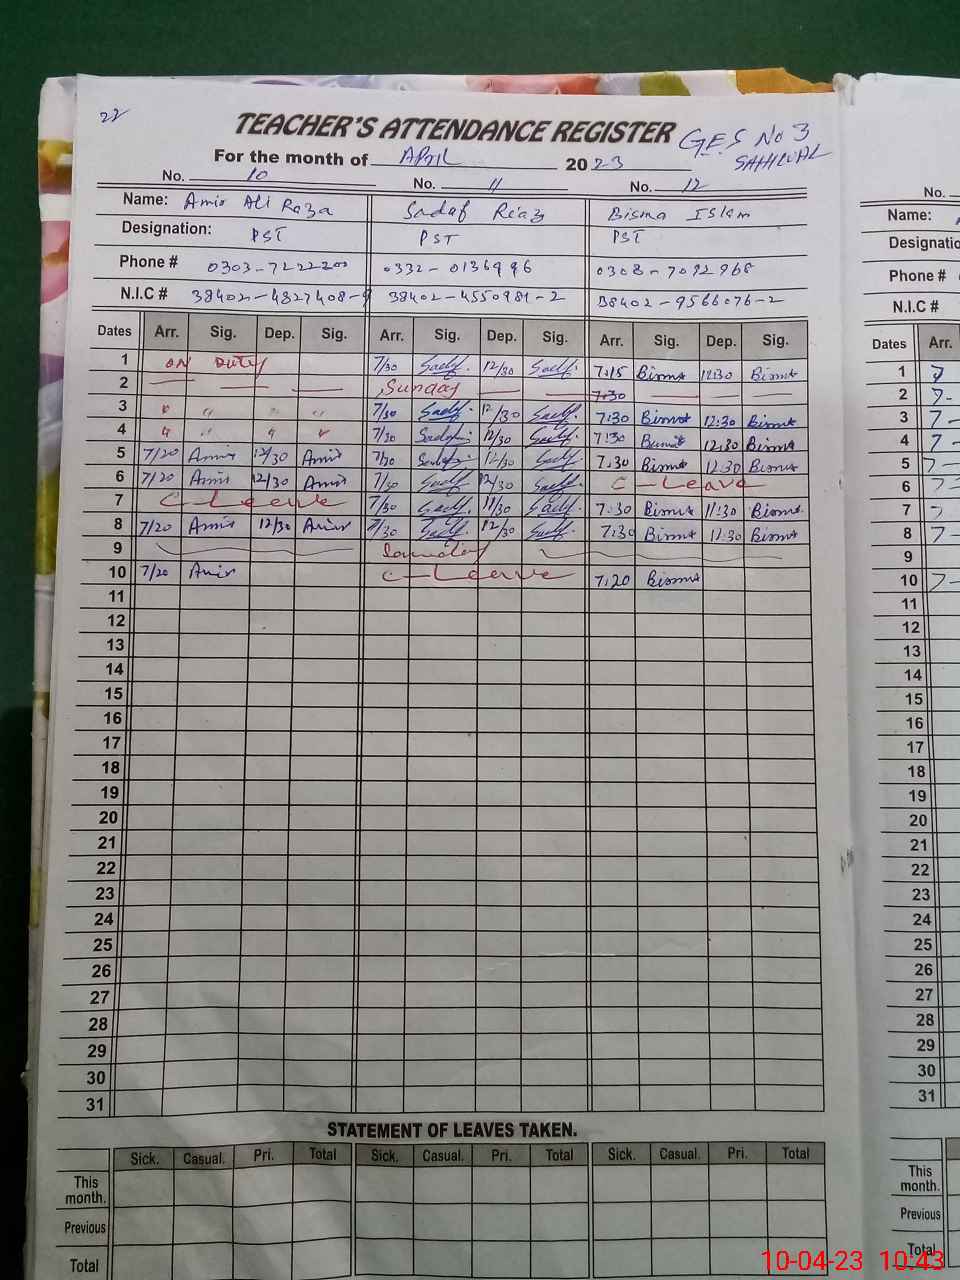 22
TEACHER'S ATTENDANCE REGISTER G.E.S No 3
For the month of APRIL 2023 SAHIWAL
No. 10 No. 11 No. 12 No.
Name: Amir Ali Raza Sadaf Riaz Bisma Islam Name:
Designation: PST PST PST Designatio
Phone # 0303-7222200 0332-0136996 0308-7092968 Phone #
N.I.C # 38402-4827408-9 38402-4550981-2 38402-9566076-2 N.I.C #
Dates Arr. Sig. Dep. Sig. Arr. Sig. Dep. Sig. Arr. Sig. Dep. Sig. Dates Arr.
1 ON DUTY 7/30 Sadf. 12/30 Sadf. 7:15 Bisma 12:30 Bisma 1 7
2 — — — — Sunday — — 7:30 — — 2 7-
3 " " " 7/30 Sadf. 12/30 Sadf. 7:30 Bisma 12:30 Bisma 3 7-
4 " " " " 7/30 Sadaf. 12/30 Sadf. 7:30 Bisma 12:30 Bisma 4 7-
5 7/20 Amir 12/30 Amir 7/30 Sadaf. 12/30 Sadf. 7:30 Bisma 12:30 Bisma 5 7-
6 7/20 Amir 12/30 Amir 7/30 Sadf 12/30 Sadf. C-Leave 6 7
7 C-Leave 7/30 Sadf. 11/30 Sadf. 7:30 Bisma 11:30 Bisma 7 7
8 7/20 Amir 12/30 Amir 7/30 Sadf. 12/30 Sadf. 7:30 Bisma 12:30 Bisma 8 7-
9 Sunday 9
10 7/20 Amir C-Leave 7:20 Bisma 10 7-
11 11
12 12
13 13
14 14
15 15
16 16
17 17
18 18
19 19
20 20
21 21
22 22
23 23
24 24
25 25
26 26
27 27
28 28
29 29
30 30
31 31
STATEMENT OF LEAVES TAKEN.
Sick. Casual. Pri. Total Sick. Casual. Pri. Total Sick. Casual. Pri. Total
This month. This month.
Previous Previous
Total Total
10-04-23 10:43